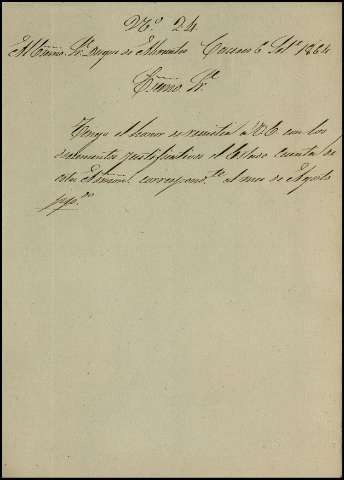 Nº. 24.
Al Excmo. Sr. Duque de Abrantes Caceres 6 Sete. 1864
Excmo. Sr.
Tengo el honor de remitir a V.E. con los
documentos justificativos el Estado Cuenta de
esta Admon. correspond.te al mes de Agosto
ppdo.